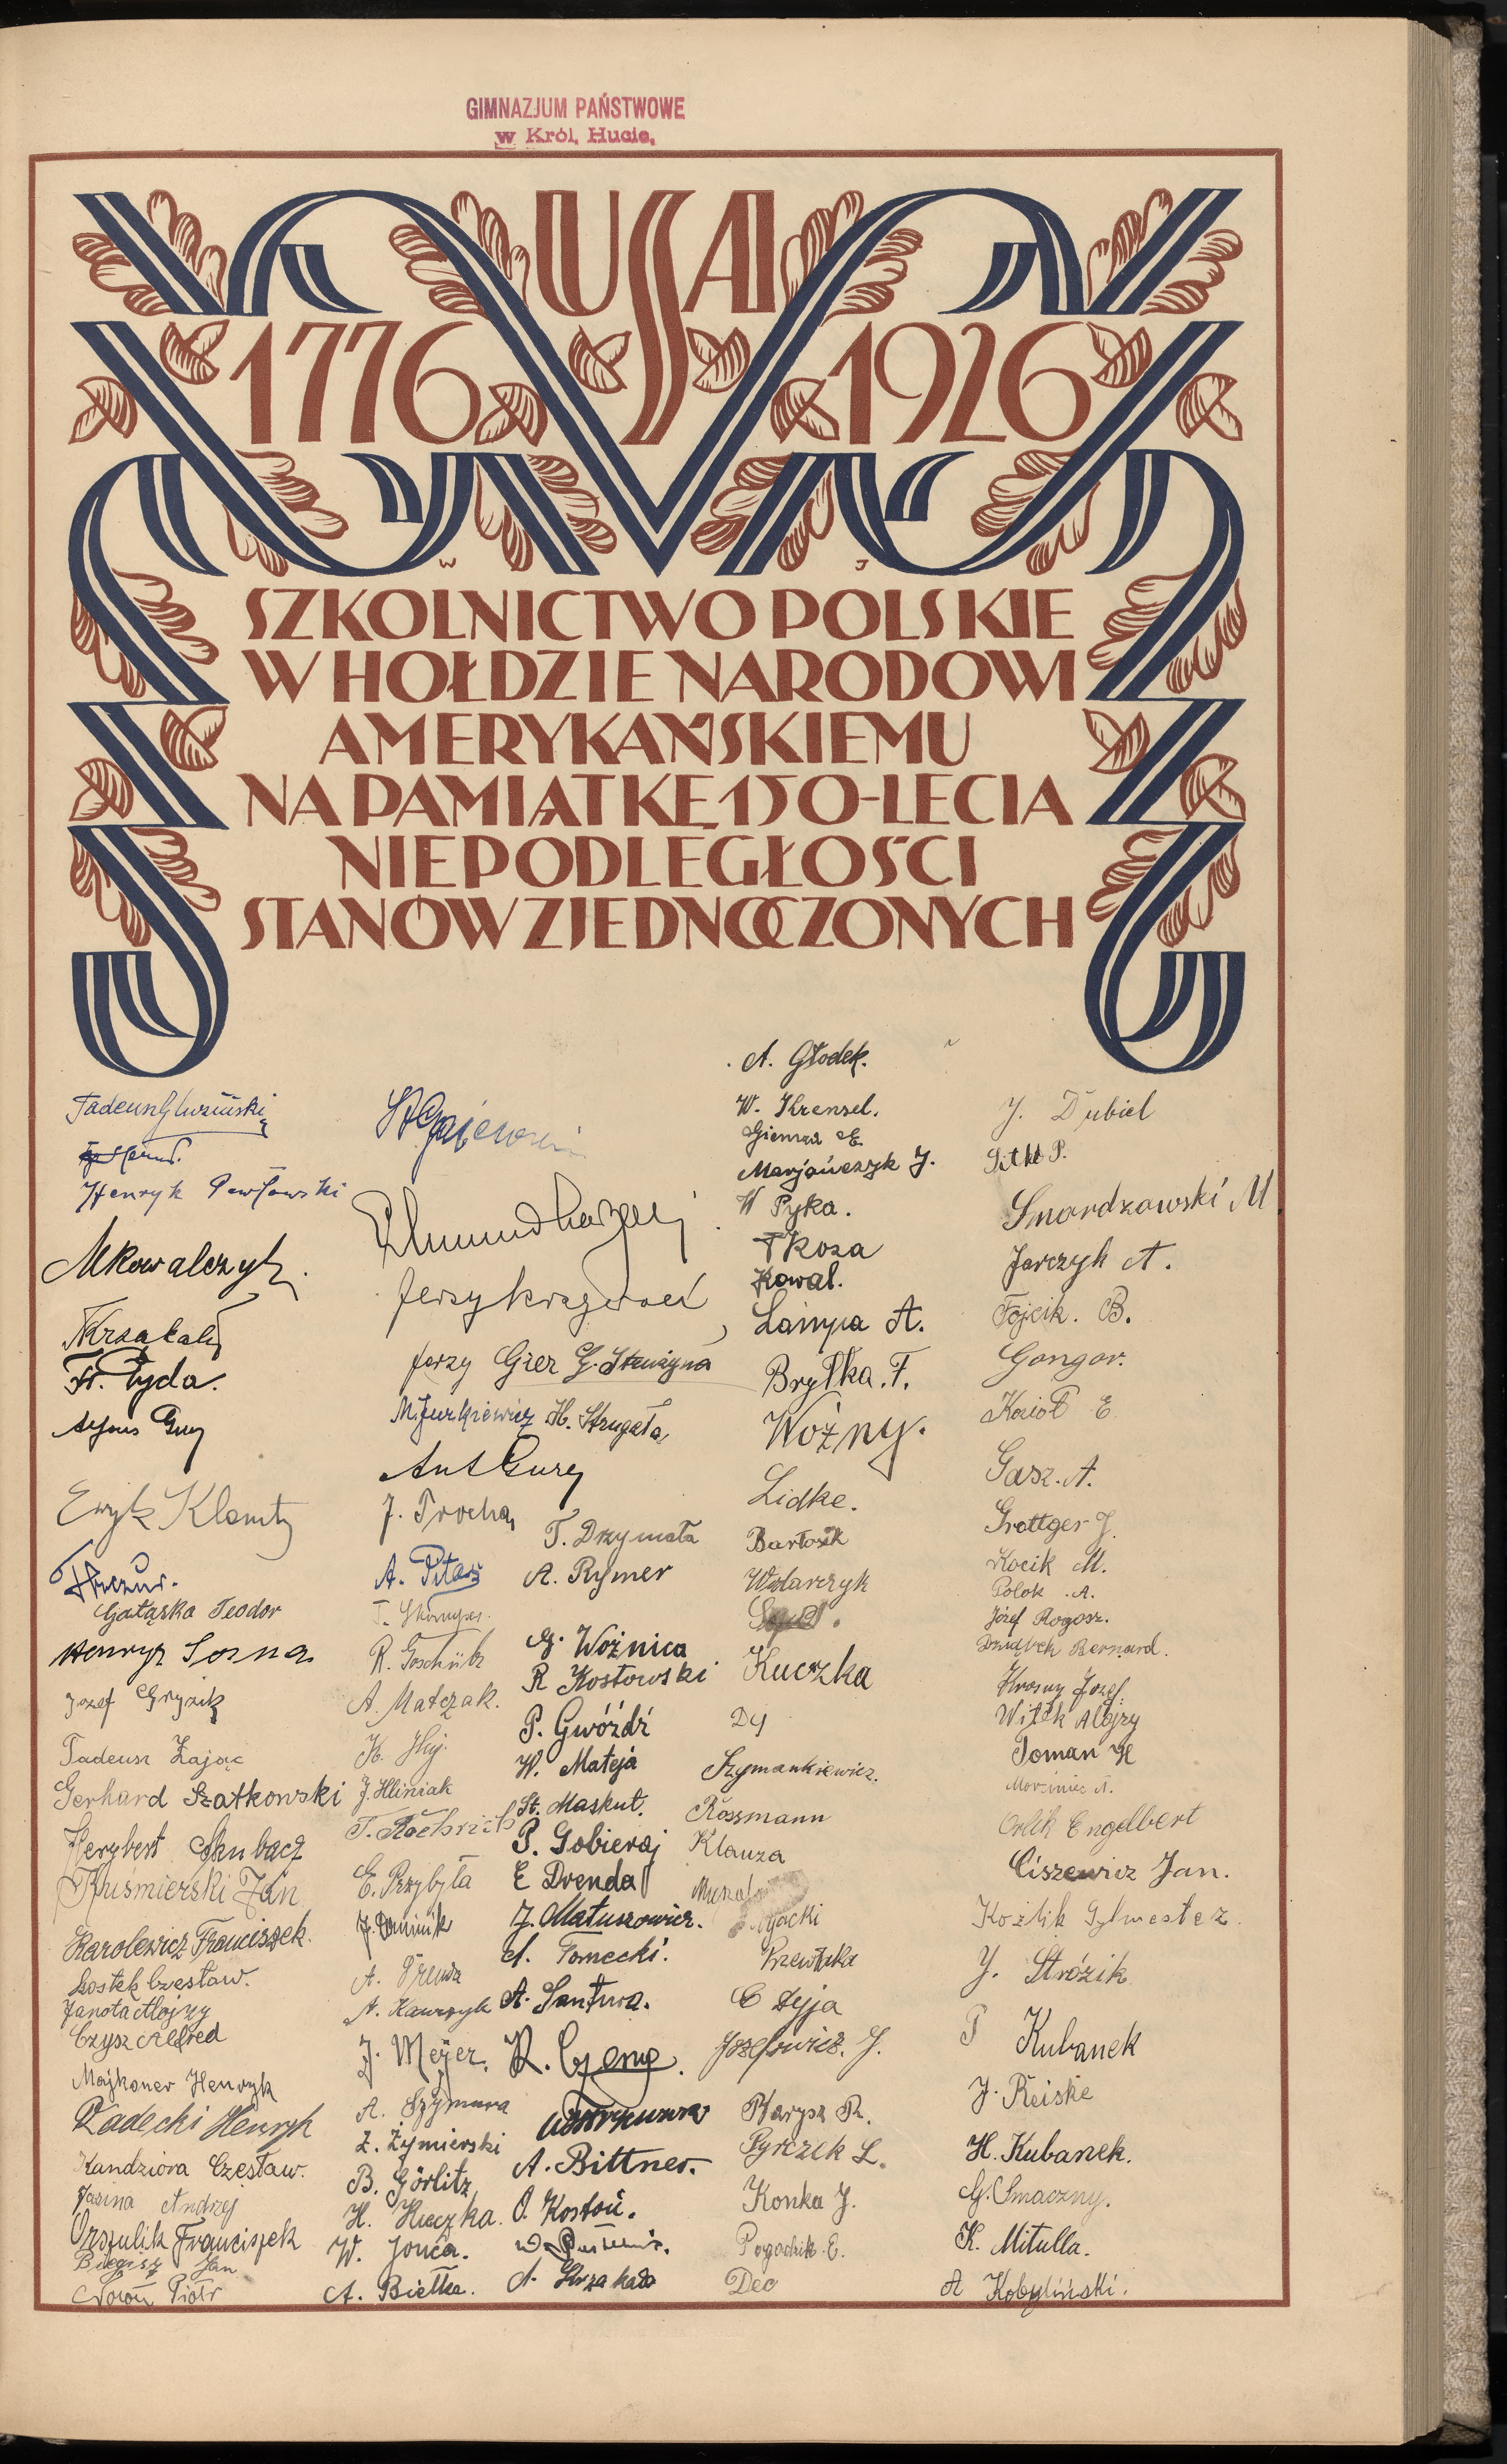 GIMNAZJUM PAŃSTWOWE
w Król. Hucie.
USA
1776 1926
W J
SZKOLNICTWO POLSKIE
W HOŁDZIE NARODOWI
AMERYKAŃSKIEMU
NA PAMIĄTKĘ 150-LECIA
NIEPODLEGŁOŚCI
STANÓW ZJEDNOCZONYCH
Henryk Pawłowski
MKowalczyk
Fr. Pyda.
Eryk
Gałązka Teodor
Henryk Sosna
Józef Gryzik
Tadeusz Zając
Gerhard Szatkowski
Herybert Skubacz
Kuśmierski Jan
Karolewicz Franciszek.
Szostek Czesław.
Janota Alojzy
Czysz Alfred
Majkoner Henryk
Radecki Henryk
Kandziora Czesław.
Jasina Andrzej
Orszulik Franciszek
Biegisz Jan
Nowoń Piotr
St Gajewski
Jerzy Gier
M. Jurkiewicz H. Strugała
J. Trocha
A. Pitas
A. Matczak.
J. Hliniak
E. Przybyła
J. Dominik
J. Meyer.
A. Szymura
Z. Żymierski
B. Görlitz
H. Kuczka.
W. Jońca.
A. Bietka.
T. Drzymała
A. Rymer
G. Woźnica
R Kostowski
P. Gwóźdź
W. Mateja
St. Maskut.
P. Gobieraj
E Drenda
J. Matuszowicz.
A. Tomecki.
A. Santura.
A. Bittner.
O. Kostoń.
A. Skrzakała
A. Głodek.
W. Krensel.
Giemza E.
Marjańczyk J.
W Pyka.
T Koza
Kowal.
Lampa A.
Bryłka. F.
Woźny.
Lidke.
Bartosik
Wolarczyk
Kuczka
Dy
Szymankiewicz.
Rossmann
Klauza
C Dyja
Józefowicz. J.
Ptarysz R.
Pyrczek L.
Konka J.
Pogodzik. E.
Dec
J. Dubiel
Sitko P.
Smardzowski M
Jarczyk A.
Fojcik. B.
Gongor.
Kozioł E
Gasz. A.
Grottger J.
Kocik M.
Polok. A.
Józef Rogosz.
Dziąbek Bernard.
Krosny Józef.
Witek Alojzy
Toman H
Morciniec A.
Orlik Engelbert
Ciszewicz Jan.
Koźlik Sylwester.
J. Stróżik
P Kubanek
J. Reiske
H. Kubanek.
G. Smaczny.
K. Mitulla.
A Kobyliński.